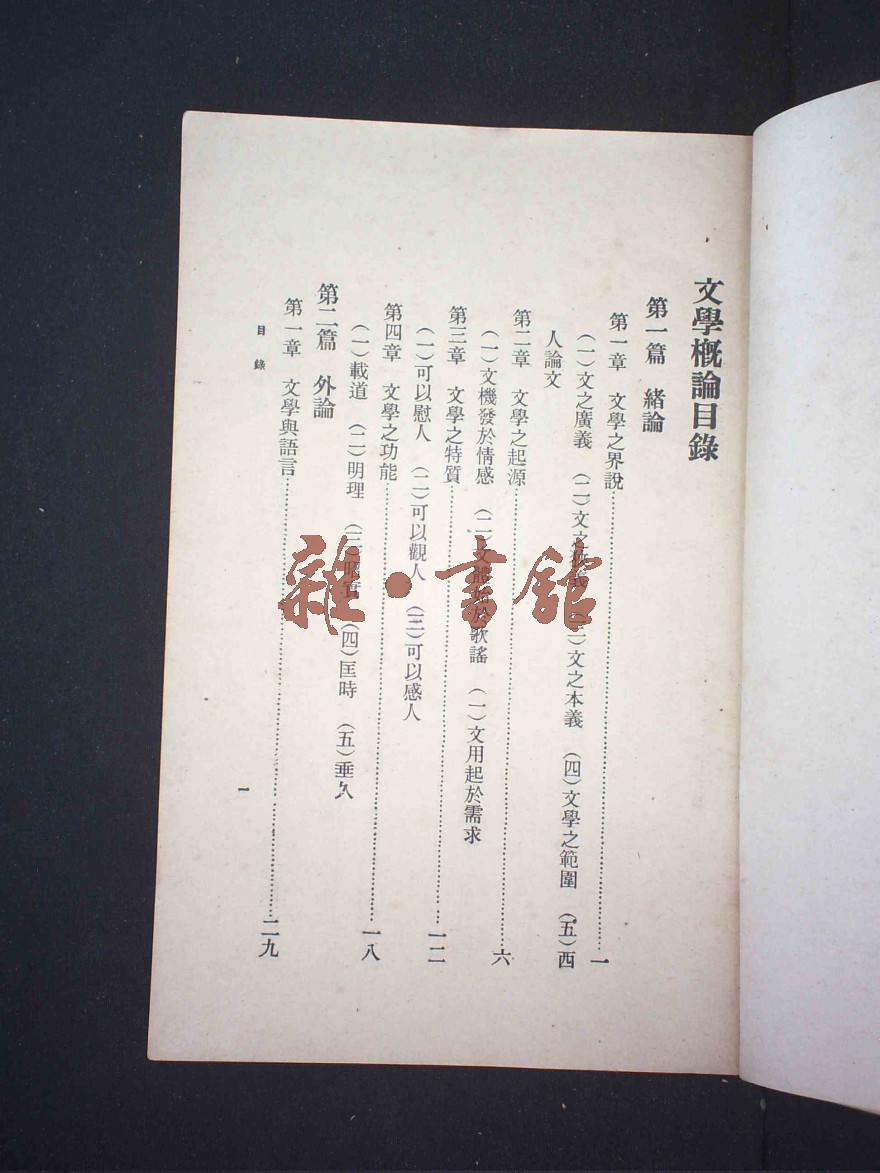 文學概論目錄
第一篇　緒論
第一章　文學之界說……一
（一）文之廣義　（二）文之狹義　（三）文之本義　（四）文學之範圍　（五）西
人論文
第二章　文學之起源……六
（一）文機發於情感　（二）文體始於歌謠　（一）文用起於需求
第三章　文學之特質……一二
（一）可以慰人　（二）可以觀人　（三）可以感人
第四章　文學之功能……一八
（一）載道　（二）明理　（三）昭實　（四）匡時　（五）垂久
第二篇　外論
第一章　文學與語言……二九
目錄
一
雜·書館